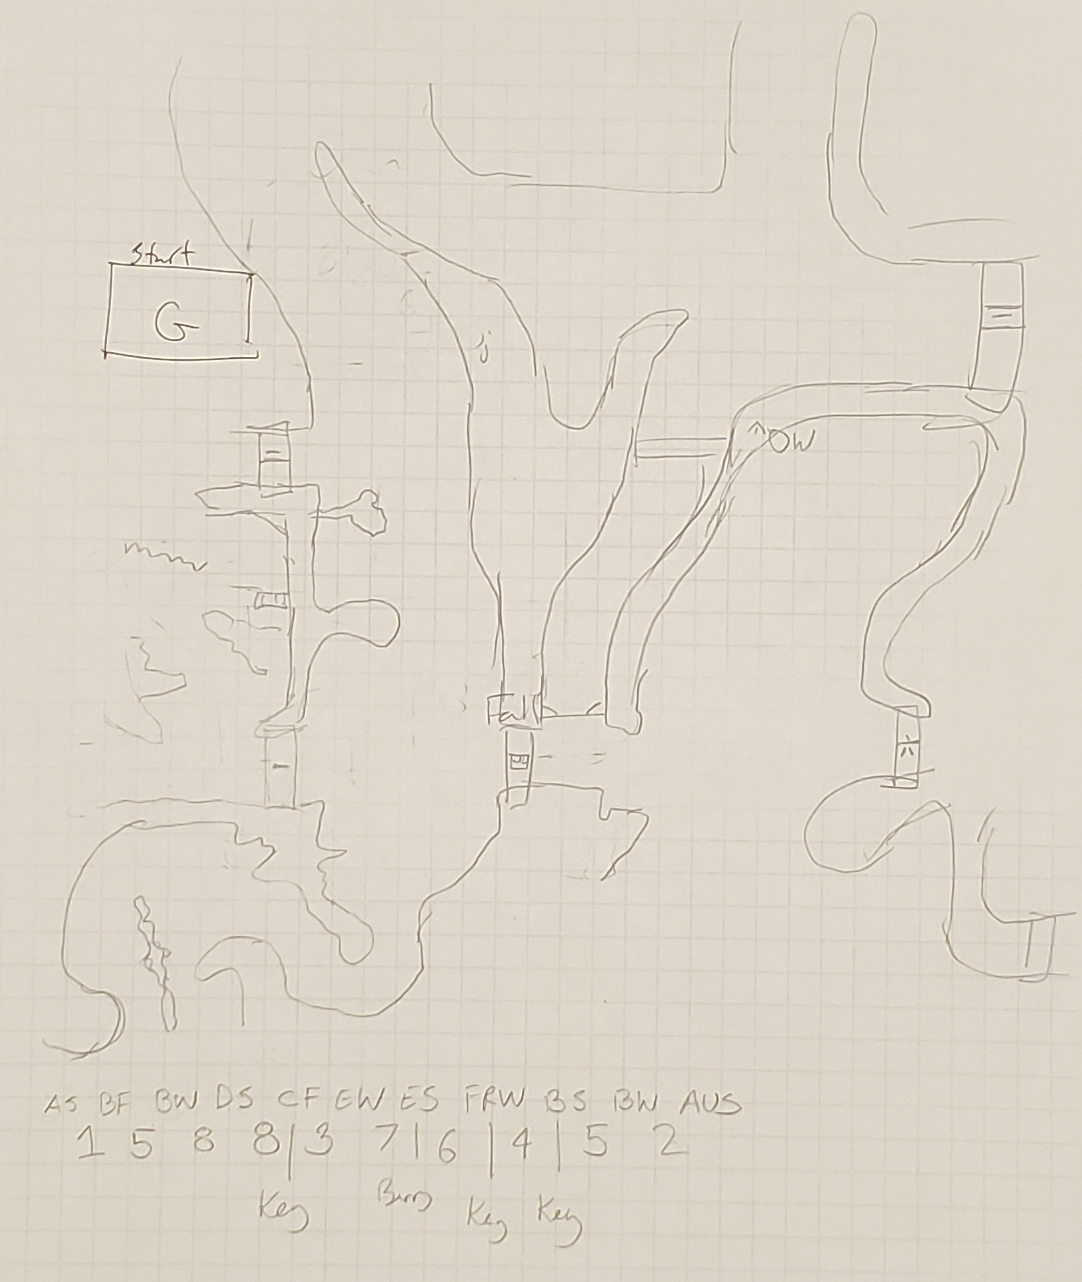 Start
G
OW
AS BF BW DS CF EW ES FRW BS BW AUS
1 5 8 8 | 3 7 | 6 | 4 | 5 2
Key Key Key